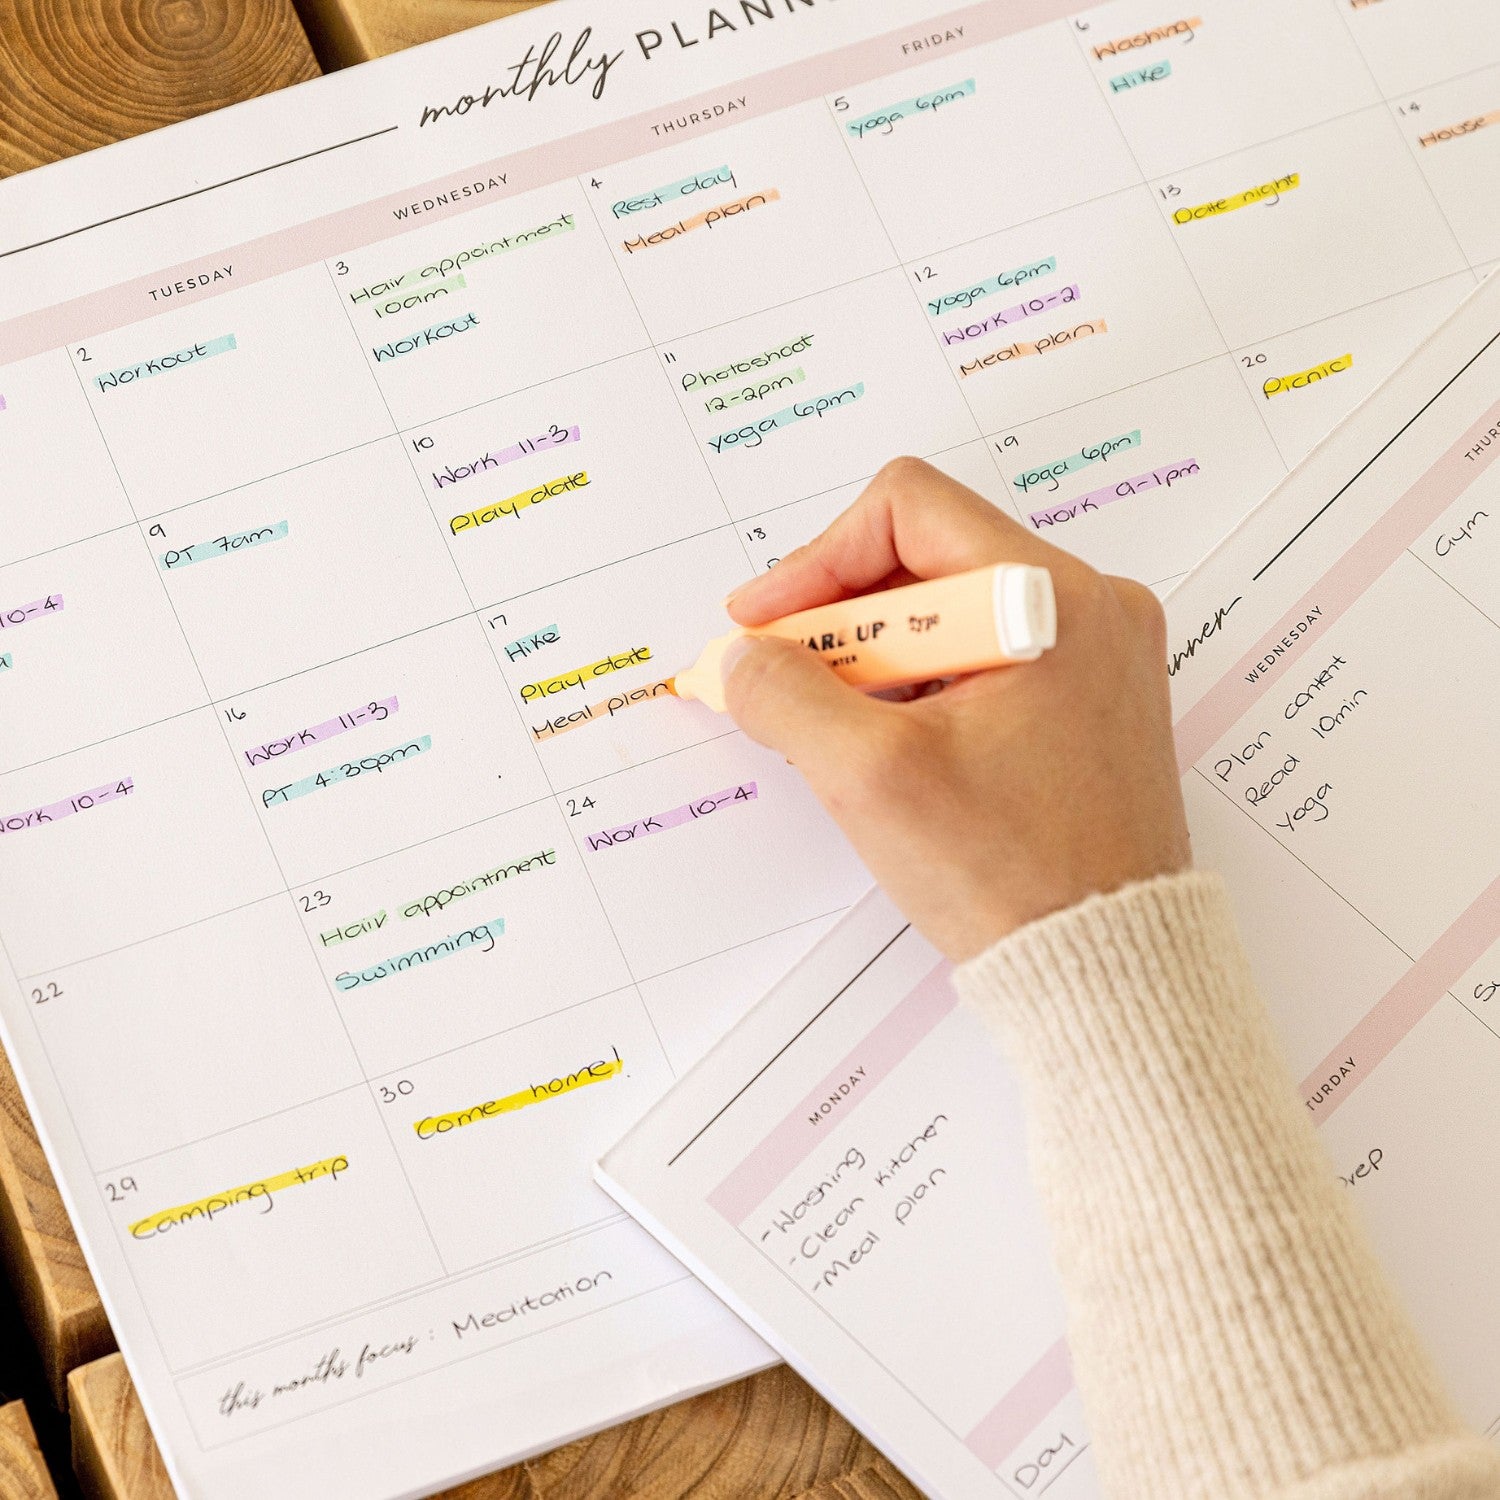 monthly PLANN
TUESDAY
WEDNESDAY
THURSDAY
FRIDAY
2
Workout
3
Hair appointment
10am
Workout
4
Rest day
Meal plan
5
yoga 6pm
6
Washing
Hike
9
PT 7am
10
Work 11-3
Play date
11
Photoshoot
12-2pm
yoga 6pm
12
yoga 6pm
Work 10-2
Meal plan
13
Date night
14
House
10-4
16
Work 11-3
PT 4:30pm
17
Hike
Play date
Meal plan
18
19
yoga 6pm
Work 9-1pm
20
Picnic
Work 10-4
22
23
Hair appointment
Swimming
24
Work 10-4
29
Camping trip
30
Come home!
this months focus : Meditation
UP type
nner
MONDAY
- Washing
- Clean kitchen
- Meal plan
WEDNESDAY
Plan content
Read 10min
yoga
THURS
Gym
TURDAY
rep
Day